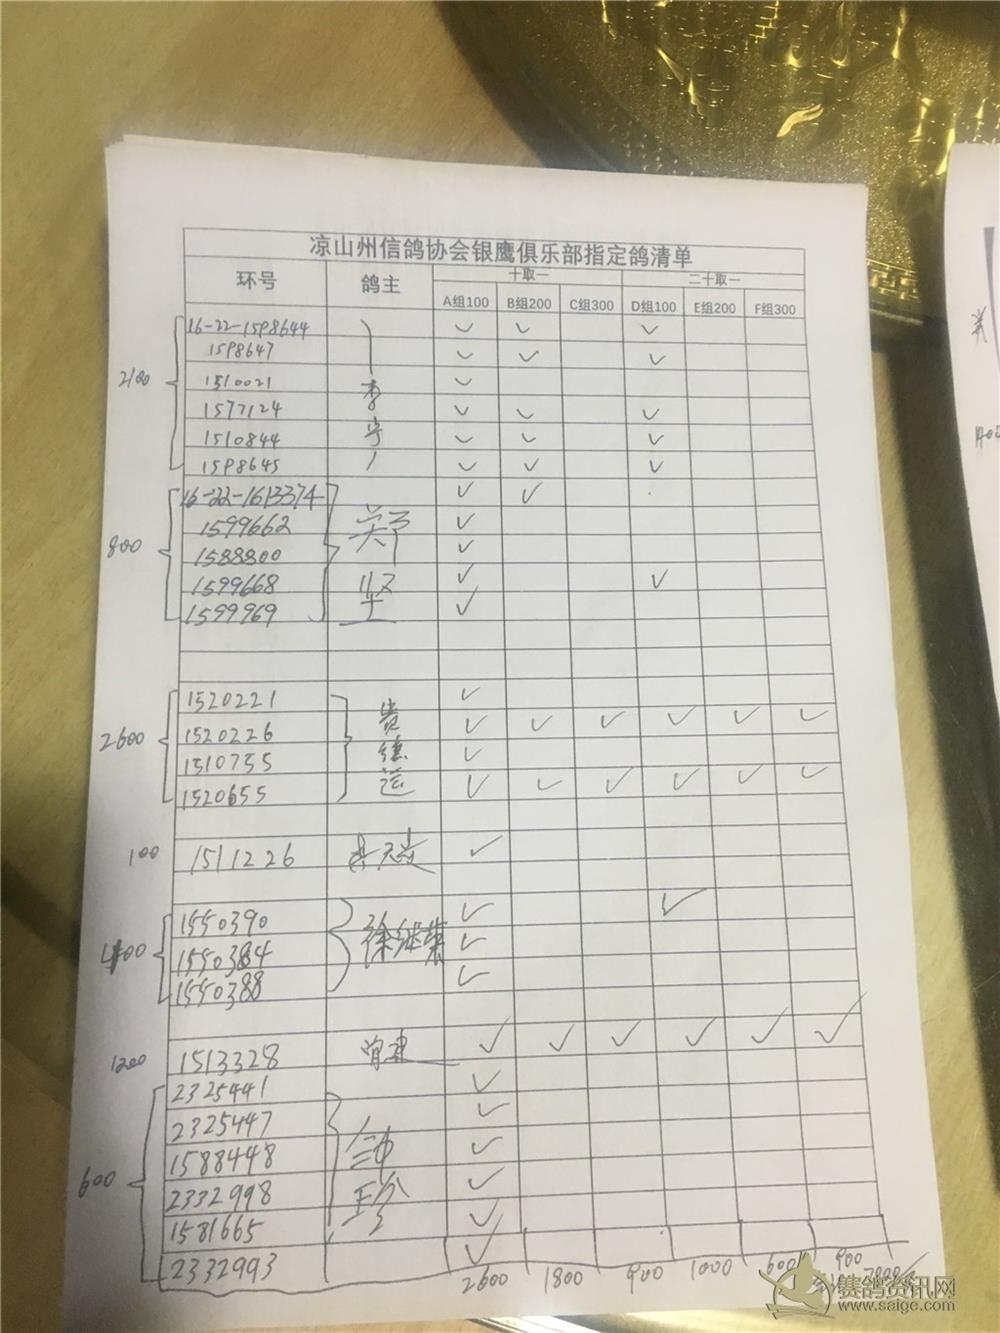 凉山州信鸽协会银鹰俱乐部指定鸽清单
环号 鸽主 十取一 二十取一
A组100 B组200 C组300 D组100 E组200 F组300
16-22-1598644 ✓ ✓ ✓
1598647 ✓ ✓ ✓
2100 1510021 李 ✓
1577124 ✓ ✓ ✓
1510844 宇 ✓ ✓ ✓
1598645 ✓ ✓ ✓
16-22-1613374 ✓ ✓
1599662 郑 ✓
800 1588800 ✓
1599668 坚 ✓ ✓
1599969 ✓
1520221 ✓
2600 1520226 贵 ✓ ✓ ✓ ✓ ✓ ✓
1510755 德 ✓
1520655 运 ✓ ✓ ✓ ✓ ✓ ✓
100 1511226 ✓
1550390 ✓ ✓
400 1550384 徐继荣 ✓
1550388 ✓
1200 1513328 曾建 ✓ ✓ ✓ ✓ ✓ ✓
2325441 ✓
2325447 ✓
600 1588448 钟 ✓
2332998 珍 ✓
1581665 ✓
2332993 ✓
2600 1800 900 1000 600 900
赛鸽资讯网
www.saige.com